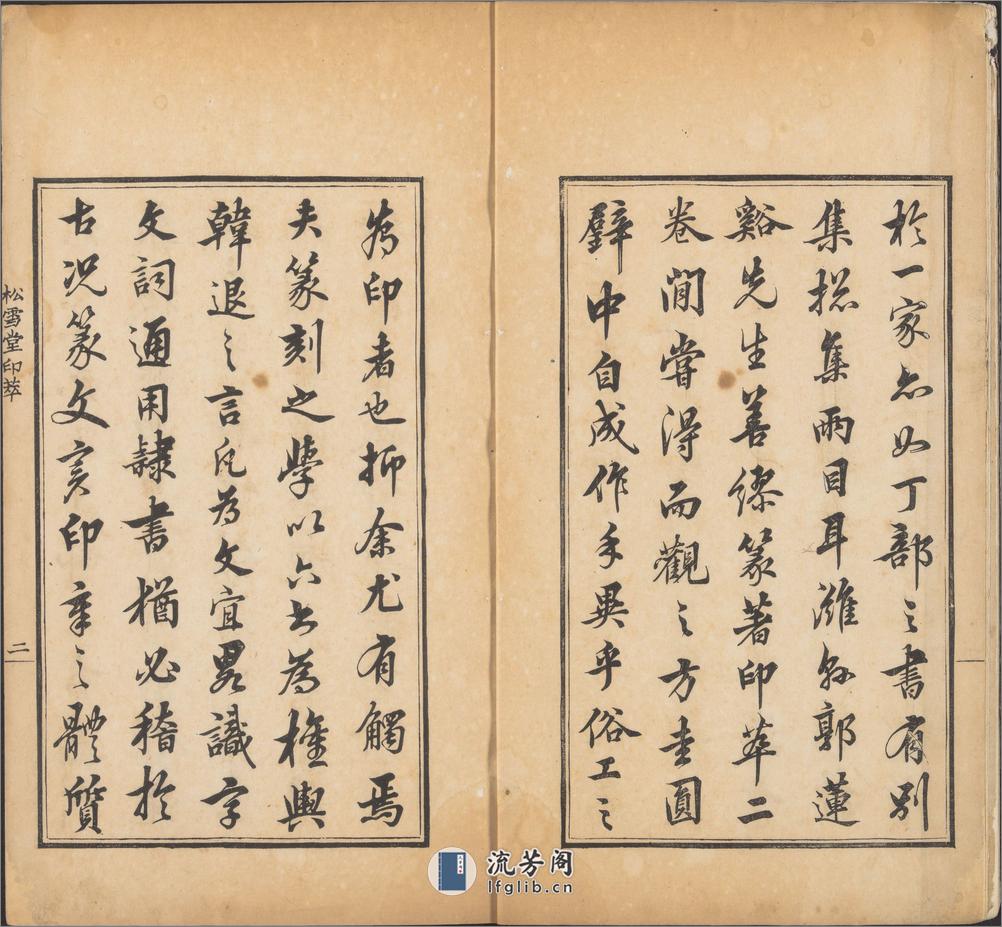 於一家亦如丁部之書有別
集總集兩目耳濰縣郭蓮
谿先生善繆篆著印萃二
卷閒嘗得而觀之方圭圓
璧中自成作手異乎俗工之
為印者也抑余尤有觸焉
夫篆刻之學以六書為權輿
韓退之言凡為文宜畧識字
文詞通用隸書猶必稽於
古况篆文寅印章之體質
松雪堂印萃
二
流芳阁
lfglib.cn